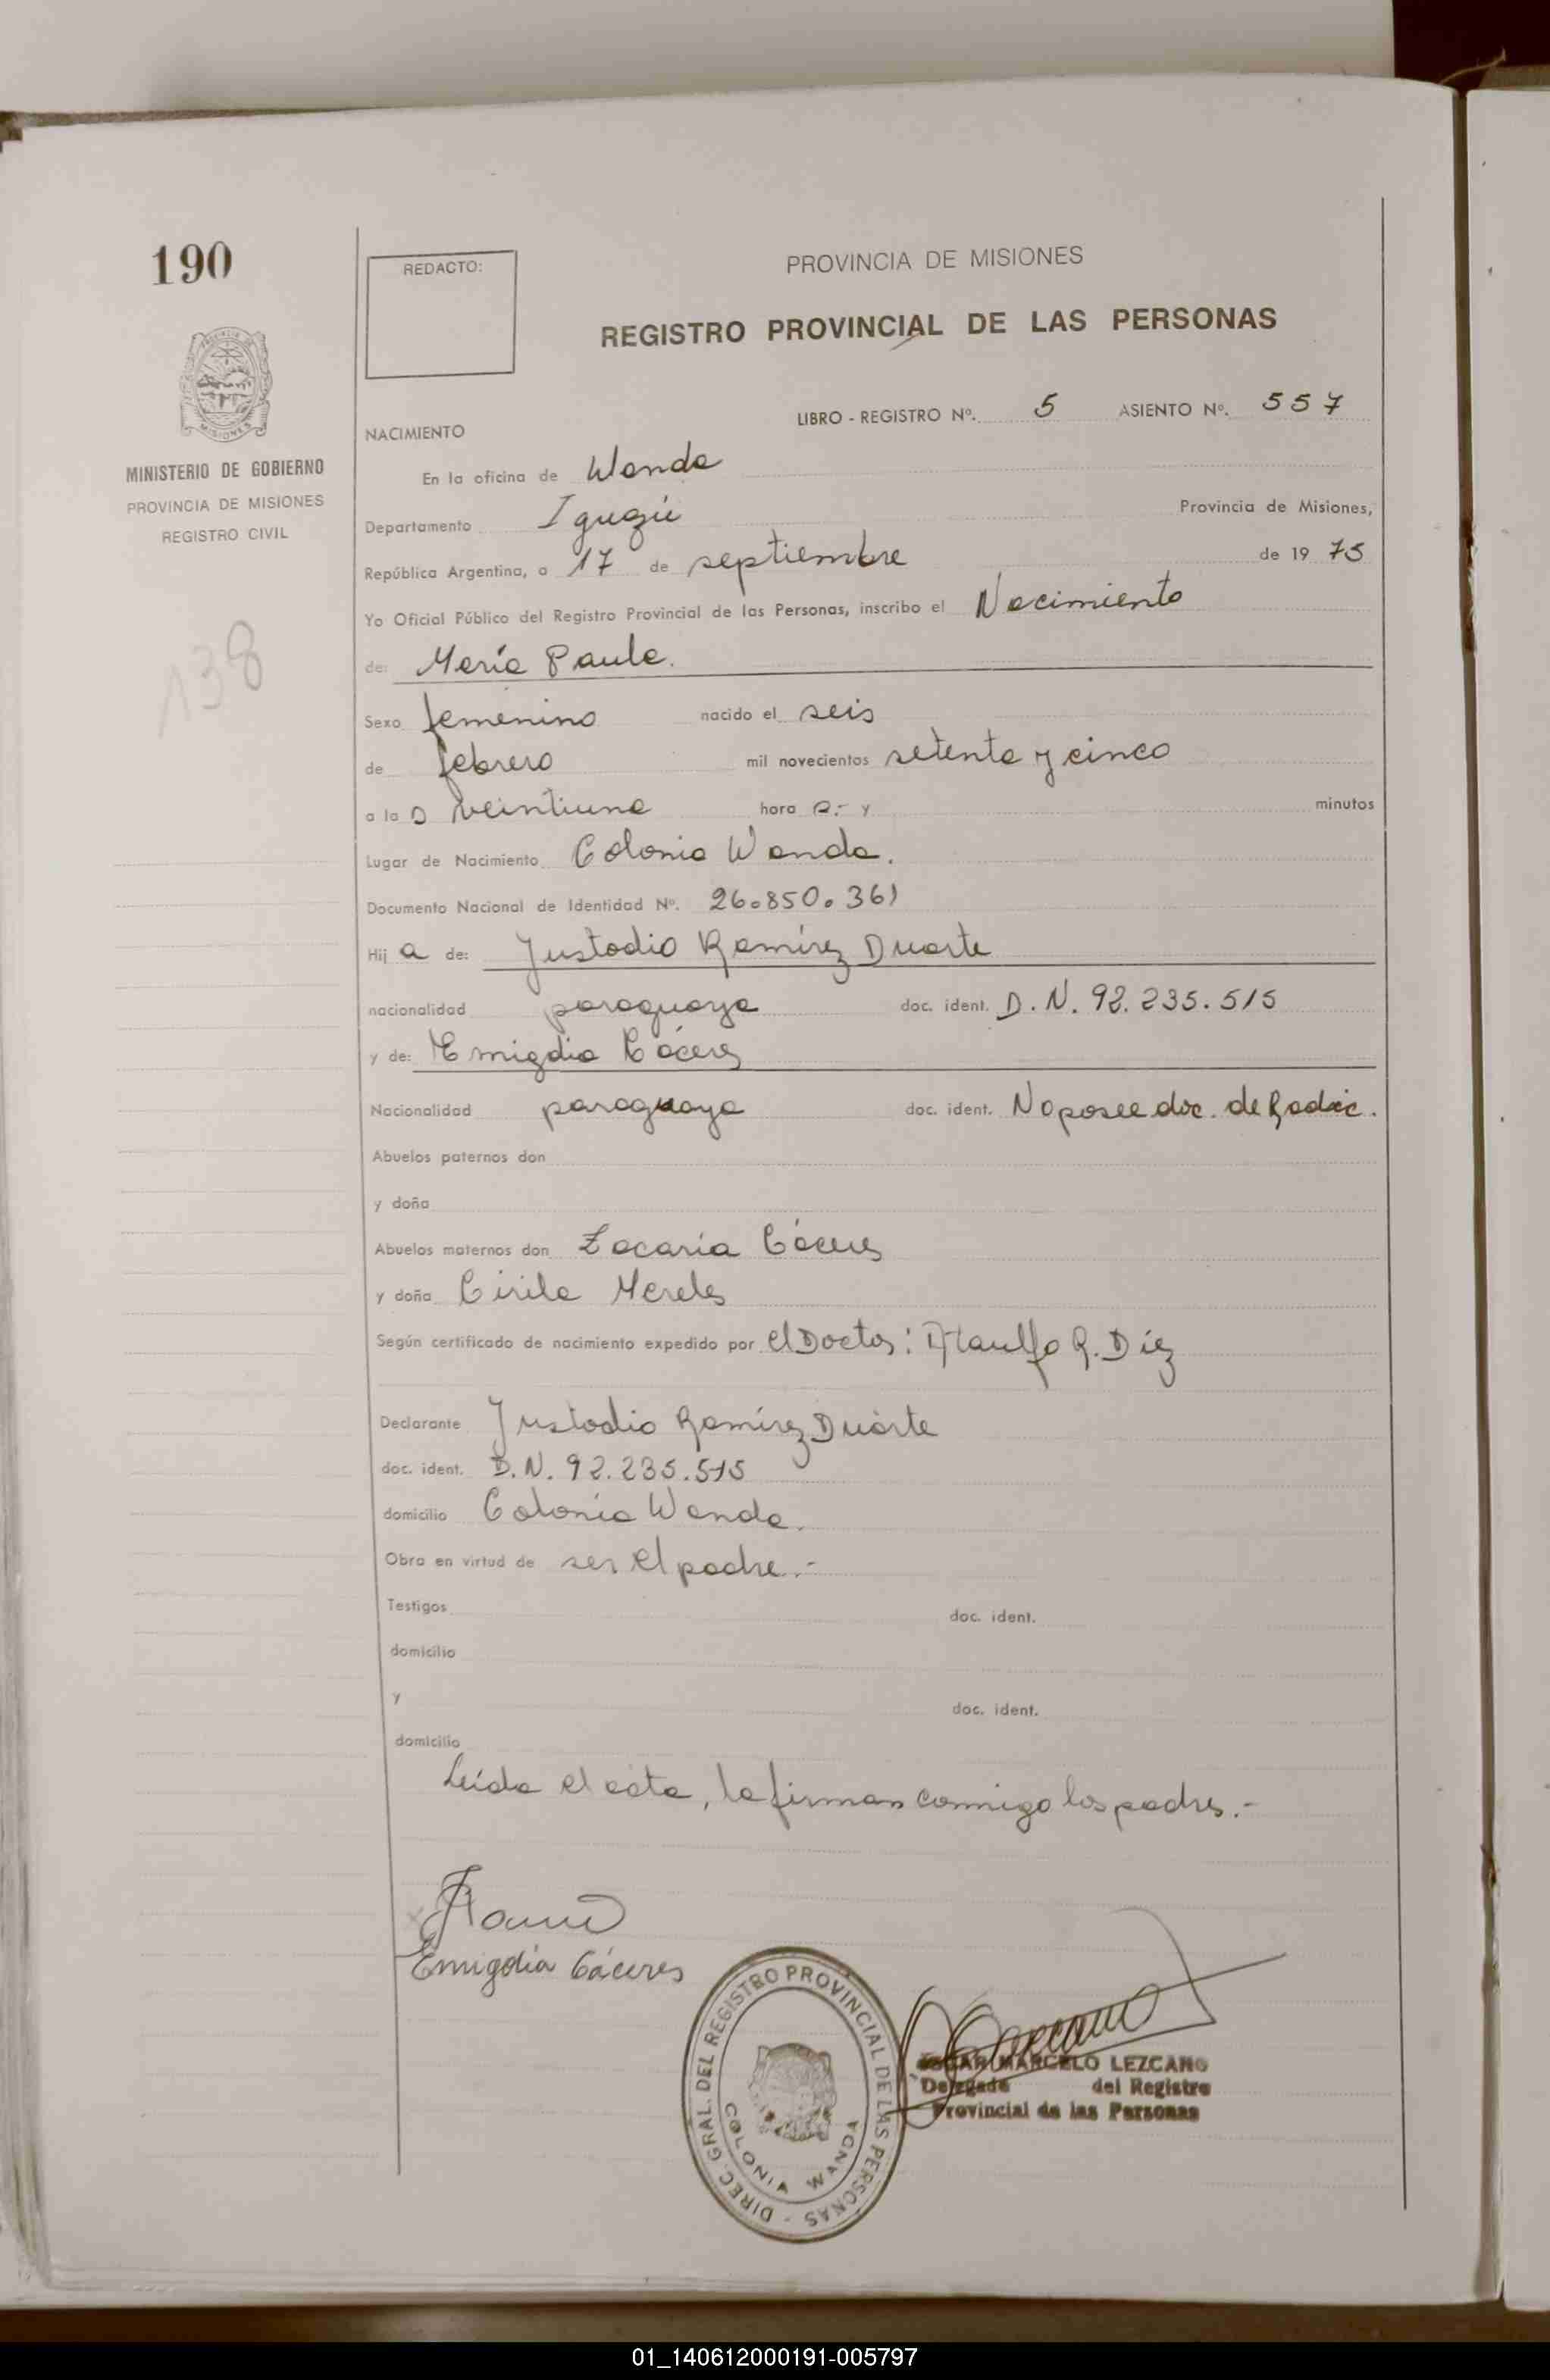 190
REDACTO:
PROVINCIA DE MISIONES
REGISTRO PROVINCIAL DE LAS PERSONAS
MINISTERIO DE GOBIERNO
PROVINCIA DE MISIONES
REGISTRO CIVIL
138
LIBRO - REGISTRO Nº. 5 ASIENTO Nº. 557
NACIMIENTO
En la oficina de Wanda
Departamento Iguazú Provincia de Misiones,
República Argentina, a 17 de septiembre de 19 75
Yo Oficial Público del Registro Provincial de las Personas, inscribo el Nacimiento
de: María Paula.
Sexo femenino nacido el seis
de febrero mil novecientos setenta y cinco
a la s veintiuna hora s.- y minutos
Lugar de Nacimiento Colonia Wanda.
Documento Nacional de Identidad Nº. 26.850.361
Hij a de: Justodio Ramírez Duarte
nacionalidad paraguaya doc. ident. D.N. 92.235.515
y de: Emigdia Cáceres
Nacionalidad paraguaya doc. ident. No posee doc. de Radic.
Abuelos paternos don
y doña
Abuelos maternos don Zacaría Cáceres
y doña Cirila Mereles
Según certificado de nacimiento expedido por el Doctor: Ataulfo R. Díez
Declarante Justodio Ramírez Duarte
doc. ident. D.N. 92.235.515
domicilio Colonia Wanda.
Obra en virtud de ser el padre.-
Testigos doc. ident.
domicilio
y doc. ident.
domicilio
Leída el acta, la firman conmigo los padres.-
Emigdia Cáceres
DIREC. GRAL. DEL REGISTRO PROVINCIAL DE LAS PERSONAS -
COLONIA WANDA
MARCELO LEZCANO
Delegado del Registro
Provincial de las Personas
01_140612000191-005797